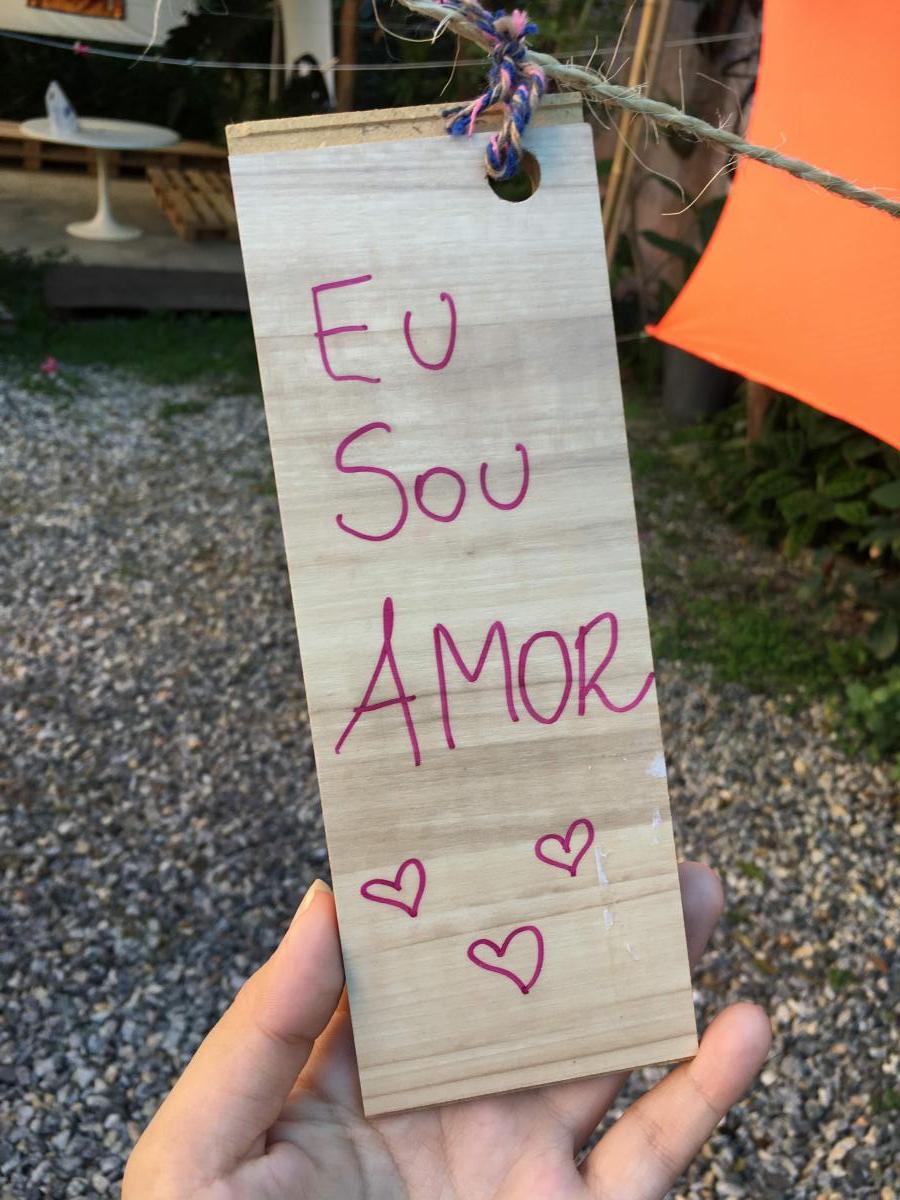 EU
SOU
AMOR